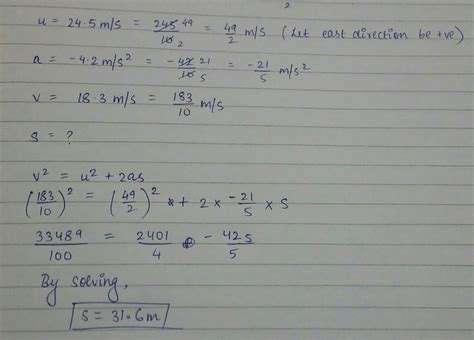 2
u = 24.5 m/s = 245 49/10 2 = 49/2 m/s (Let east direction be +ve)
a = -4.2 m/s² = -42 21/10 5 = -21/5 m/s²
v = 18.3 m/s = 183/10 m/s
s = ?
v² = u² + 2as
(183/10)² = (49/2)² + 2 × -21/5 × s
33489/100 = 2401/4 - 42s/5
By solving,
s = 31.6m